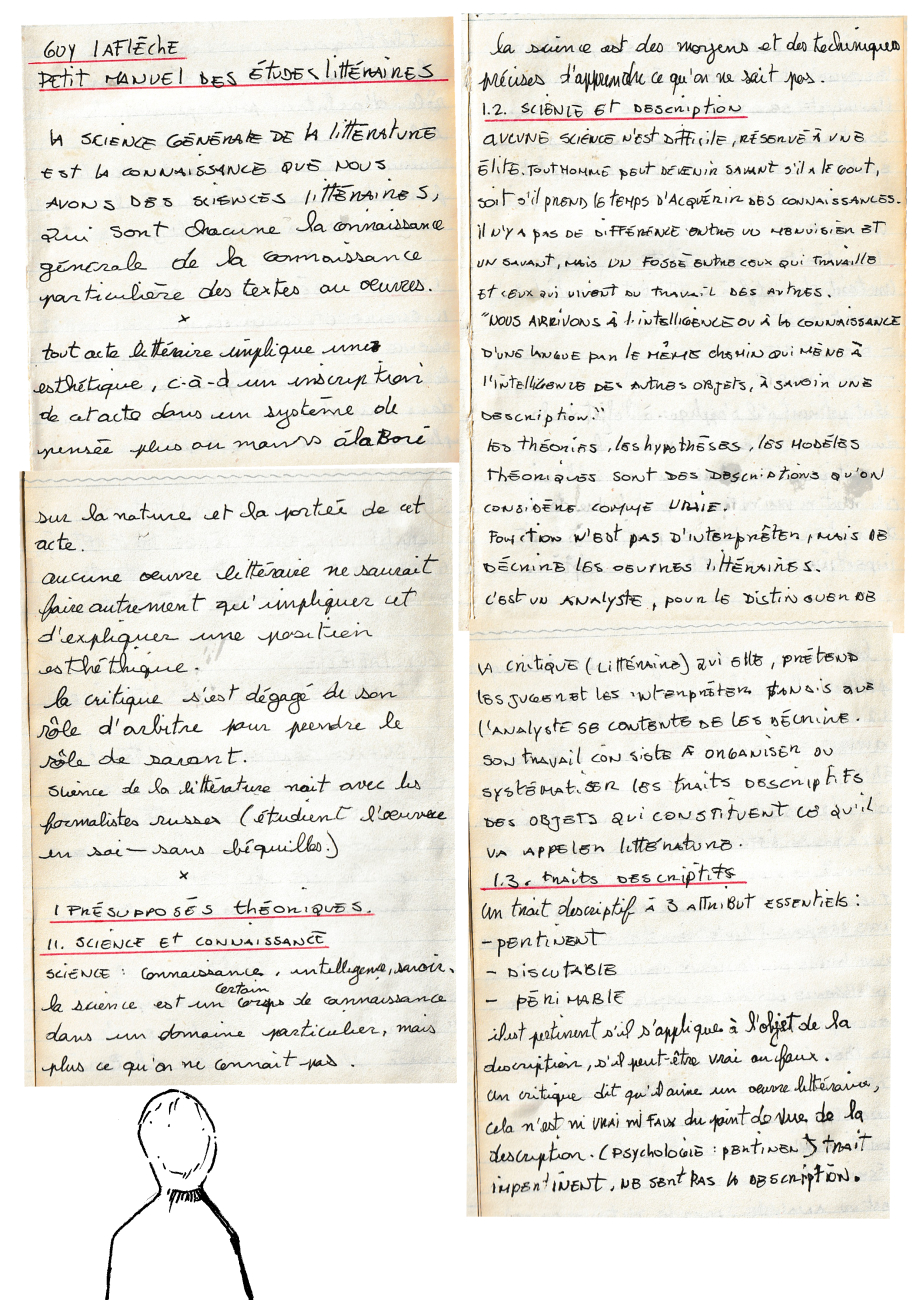 GUY LAFLÈCHE
PETIT MANUEL DES ÉTUDES LITTÉRAIRES
LA SCIENCE GÉNÉRALE DE LA LITTÉRATURE
EST LA CONNAISSANCE QUE NOUS
AVONS DES SCIENCES LITTÉRAIRES,
qui sont chacune la connaissance
générale de la connaissance
particulière des textes ou oeuvres.
x
tout acte littéraire implique une
esthétique, c-à-d un inscription
de cet acte dans un système de
pensée plus ou moins élaboré
sur la nature et la portée de cet
acte.
aucune oeuvre littéraire ne saurait
faire autrement qu'impliquer et
d'expliquer une position
esthéthique.
la critique s'est dégagé de son
rôle d'arbitre pour prendre le
rôle de savant.
Science de la littérature nait avec les
formalistes russes (étudient l'oeuvre
en soi — sans béquilles.)
x
1 PRÉSUPPOSÉS THÉORIQUES.
11. SCIENCE ET CONNAISSANCE
SCIENCE : Connaissance, intelligence, savoir.
la science est un certain corps de connaissance
dans un domaine particulier, mais
plus ce qu'on ne connait pas.
la science est des moyens et des techniques
précises d'apprendre ce qu'on ne sait pas.
1.2. SCIENCE ET DESCRIPTION
AUCUNE SCIENCE N'EST DIFFICILE, RÉSERVÉ À UNE
ÉLITE. TOUT HOMME PEUT DEVENIR SAVANT S'IL A LE GOUT,
SOIT S'IL PREND LE TEMPS D'ACQUÉRIR DES CONNAISSANCES.
IL N'Y A PAS DE DIFFÉRENCE ENTRE UN MENUISIER ET
UN SAVANT, MAIS UN FOSSÉ ENTRE CEUX QUI TRAVAILLE
ET CEUX QUI VIVENT DU TRAVAIL DES AUTRES.
"NOUS ARRIVONS À L'INTELLIGENCE OU À LA CONNAISSANCE
D'UNE LANGUE PAR LE MÊME CHEMIN QUI MÈNE À
L'INTELLIGENCE DES AUTRES OBJETS, À SAVOIR UNE
DESCRIPTION."
LES THÉORIES, LES HYPOTHÈSES, LES MODÈLES
THÉORIQUES SONT DES DESCRIPTIONS QU'ON
CONSIDÈRE COMME VRAIE.
FONCTION N'EST PAS D'INTERPRÊTER, MAIS DE
DÉCRIRE LES OEUVRES LITTÉRAIRES.
C'EST UN ANALYSTE, POUR LE DISTINGUER DE
LA CRITIQUE (LITTÉRAIRE) QUI ELLE, PRÉTEND
LES JUGER ET LES INTERPRÉTER TANDIS QUE
L'ANALYSTE SE CONTENTE DE LES DÉCRIRE.
SON TRAVAIL CONSISTE À ORGANISER OU
SYSTÉMATISER LES TRAITS DESCRIPTIFS
DES OBJETS QUI CONSTITUENT CE QU'IL
VA APPELER LITTÉRATURE.
1.3. TRAITS DESCRIPTIFS
Un trait descriptif à 3 ATTRIBUT ESSENTIELS :
- PERTINENT
- DISCUTABLE
- PÉRIMABLE
il est pertinent s'il s'applique à l'objet de la
description, s'il peut-être vrai ou faux.
un critique dit qu'il aime un oeuvre littéraire,
cela n'est ni VRAI ni FAUX du point de vue de la
description. (PSYCHOLOGIE : PERTINENT) TRAIT
IMPERTINENT, NE SERT PAS LA DESCRIPTION.